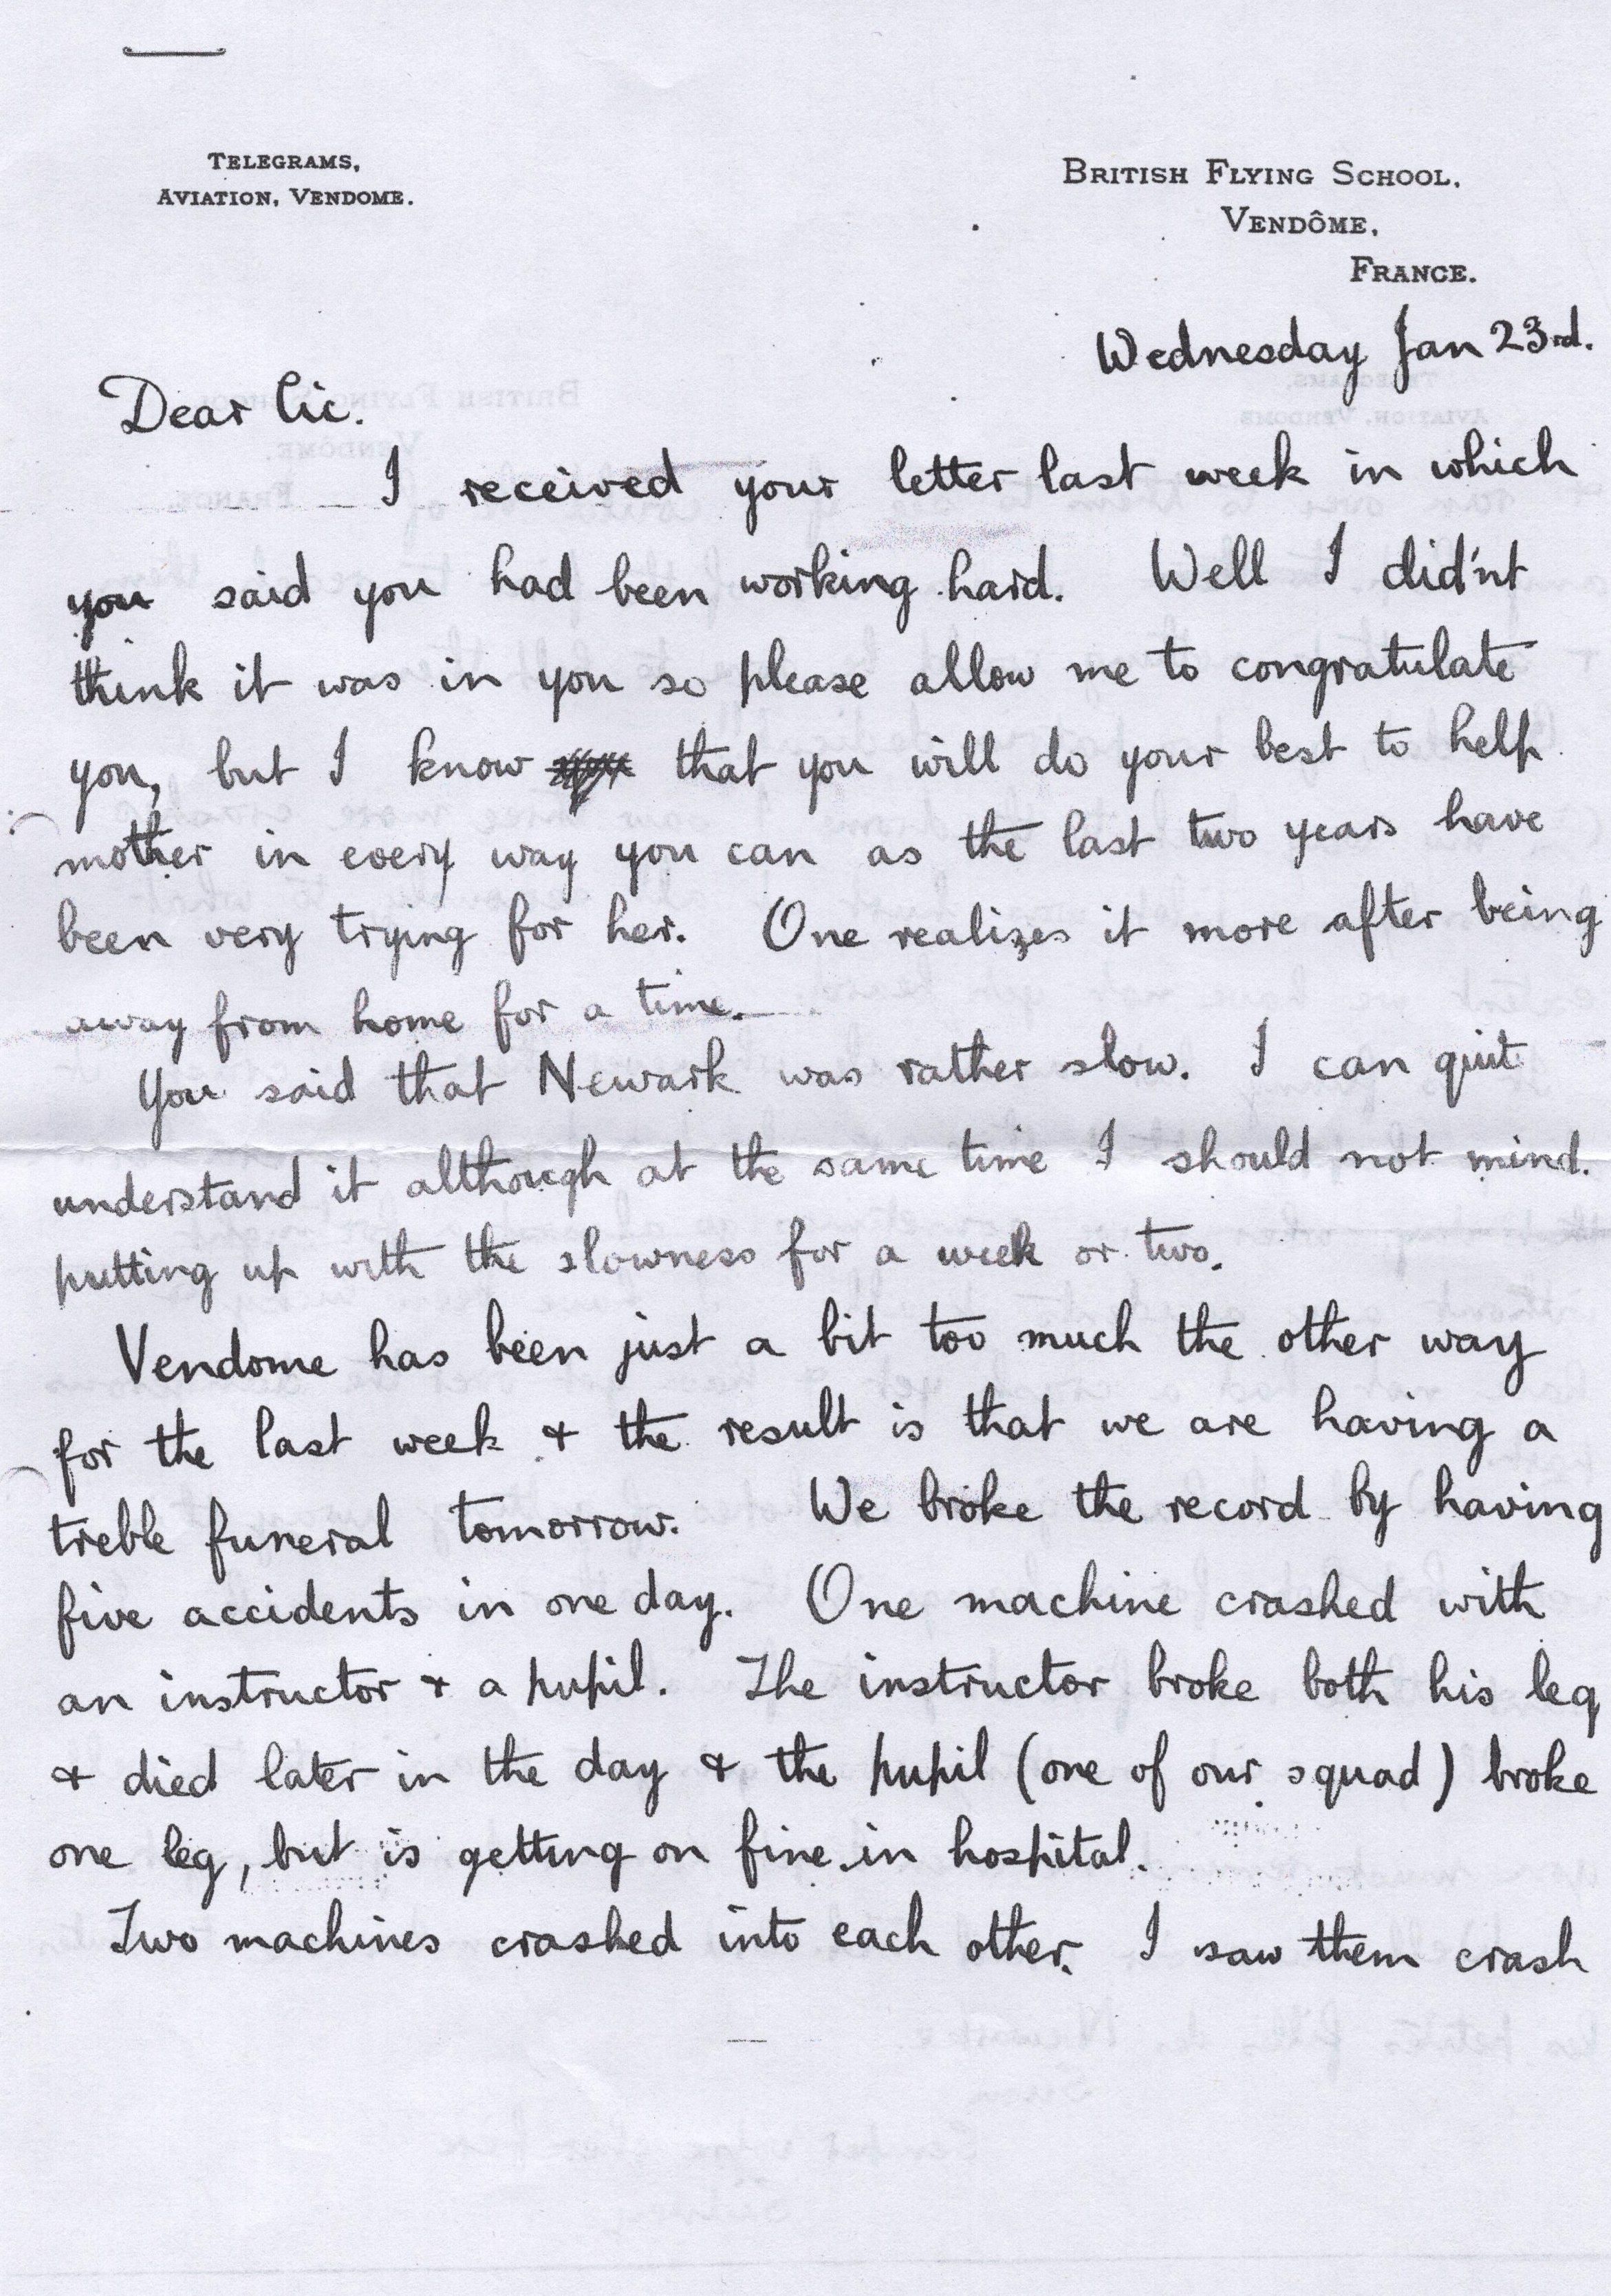 TELEGRAMS,
AVIATION, VENDOME.
BRITISH FLYING SCHOOL,
VENDÔME,
FRANCE.
Wednesday Jan 23rd.
Dear Cic.
I received your letter last week in which
you said you had been working hard. Well I did'nt
think it was in you so please allow me to congratulate
you, but I know that you will do your best to help
mother in every way you can as the last two years have
been very trying for her. One realizes it more after being
away from home for a time.
You said that Newark was rather slow. I can quit
understand it although at the same time I should not mind.
putting up with the slowness for a week or two.
Vendome has been just a bit too much the other way
for the last week & the result is that we are having a
treble funeral tomorrow. We broke the record by having
five accidents in one day. One machine crashed with
an instructor & a pupil. The instructor broke both his leg
& died later in the day & the pupil (one of our squad) broke
one leg, but is getting on fine in hospital.
Two machines crashed into each other. I saw them crash